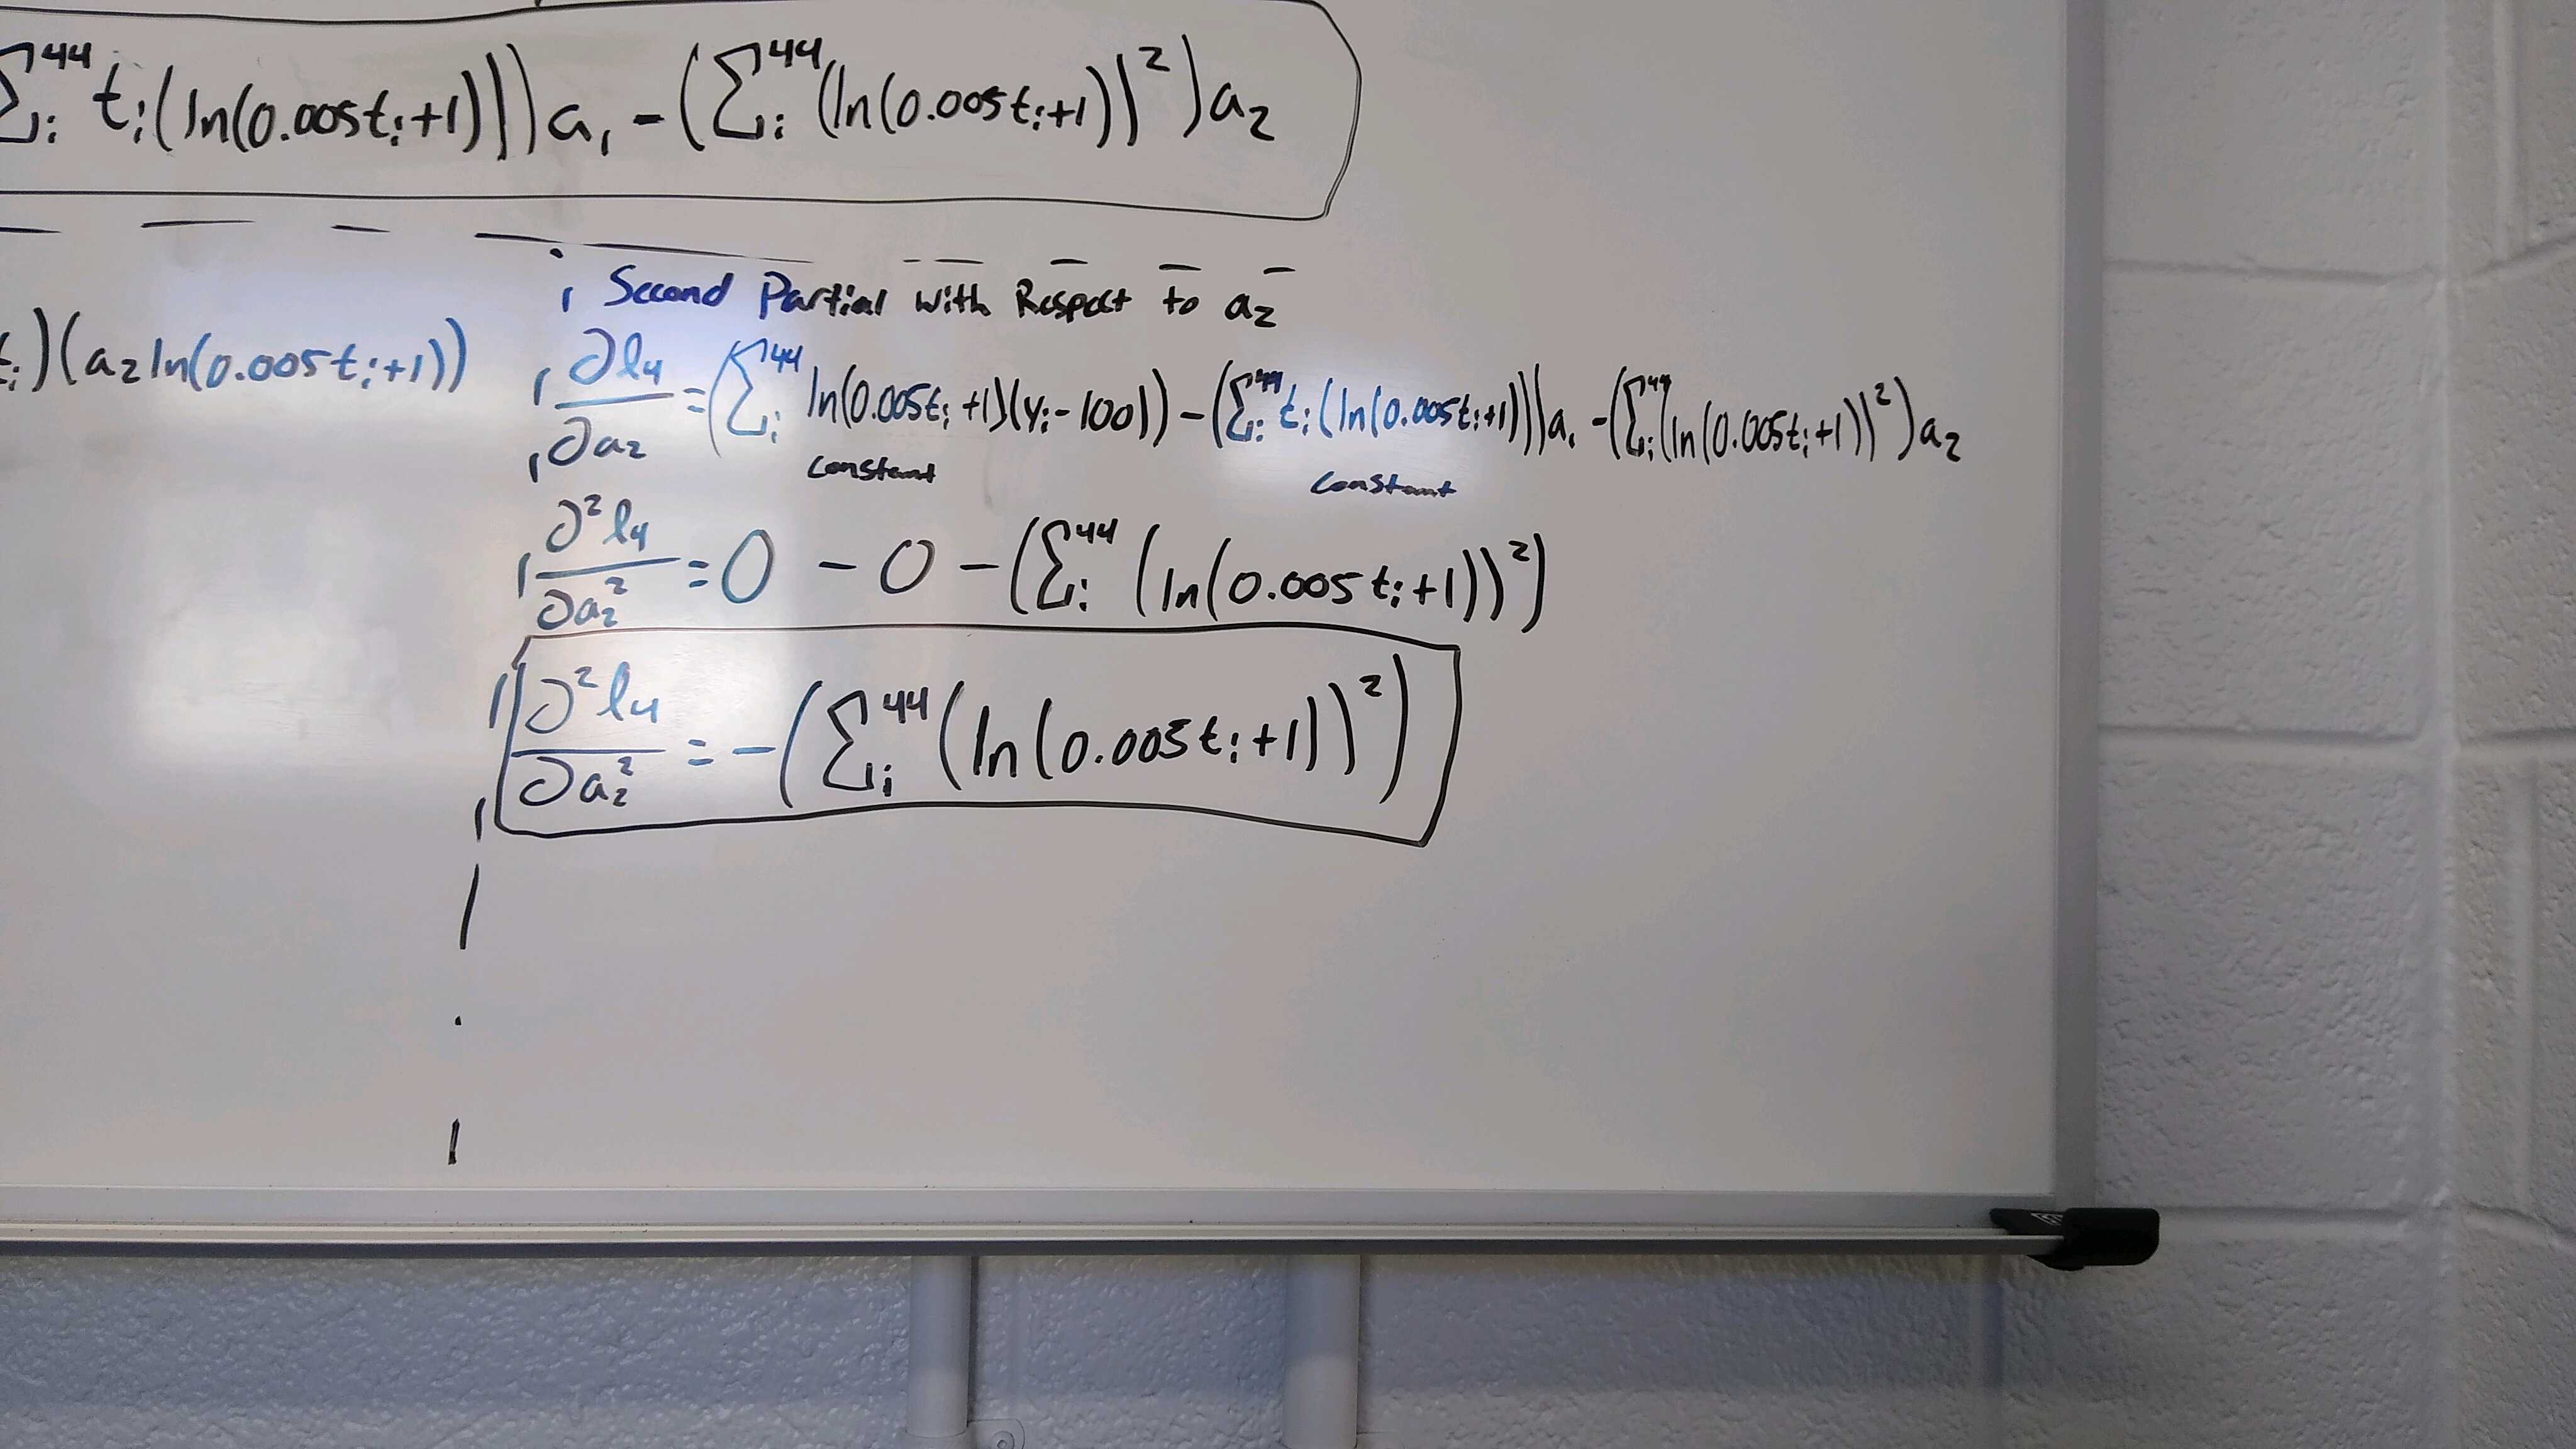 ∑ᵢ⁴⁴ tᵢ(ln(0.005tᵢ+1)))a₁ - (∑ᵢ⁴⁴(ln(0.005tᵢ+1))²)a₂
Second Partial With Respect to a₂
tᵢ)(a₂ln(0.005tᵢ+1))
∂l₄/∂a₂ = (∑ᵢ⁴⁴ ln(0.005tᵢ+1)(yᵢ-100)) - (∑ᵢ⁴⁴ tᵢ(ln(0.005tᵢ+1)))a₁ - (∑ᵢ⁴⁴(ln(0.005tᵢ+1))²)a₂
Constant Constant
∂²l₄/∂a₂² = 0 - 0 - (∑ᵢ⁴⁴ (ln(0.005tᵢ+1))²)
∂²l₄/∂a₂² = -(∑ᵢ⁴⁴(ln(0.005tᵢ+1))²)